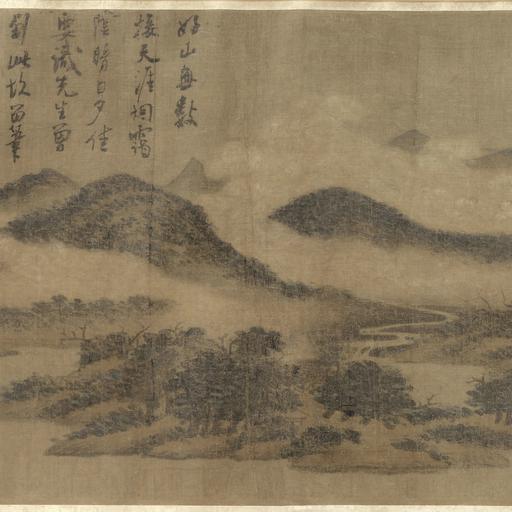 好山無數
接天涯烟靄
陰晴日夕佳
要識先生曾
到此故留筆